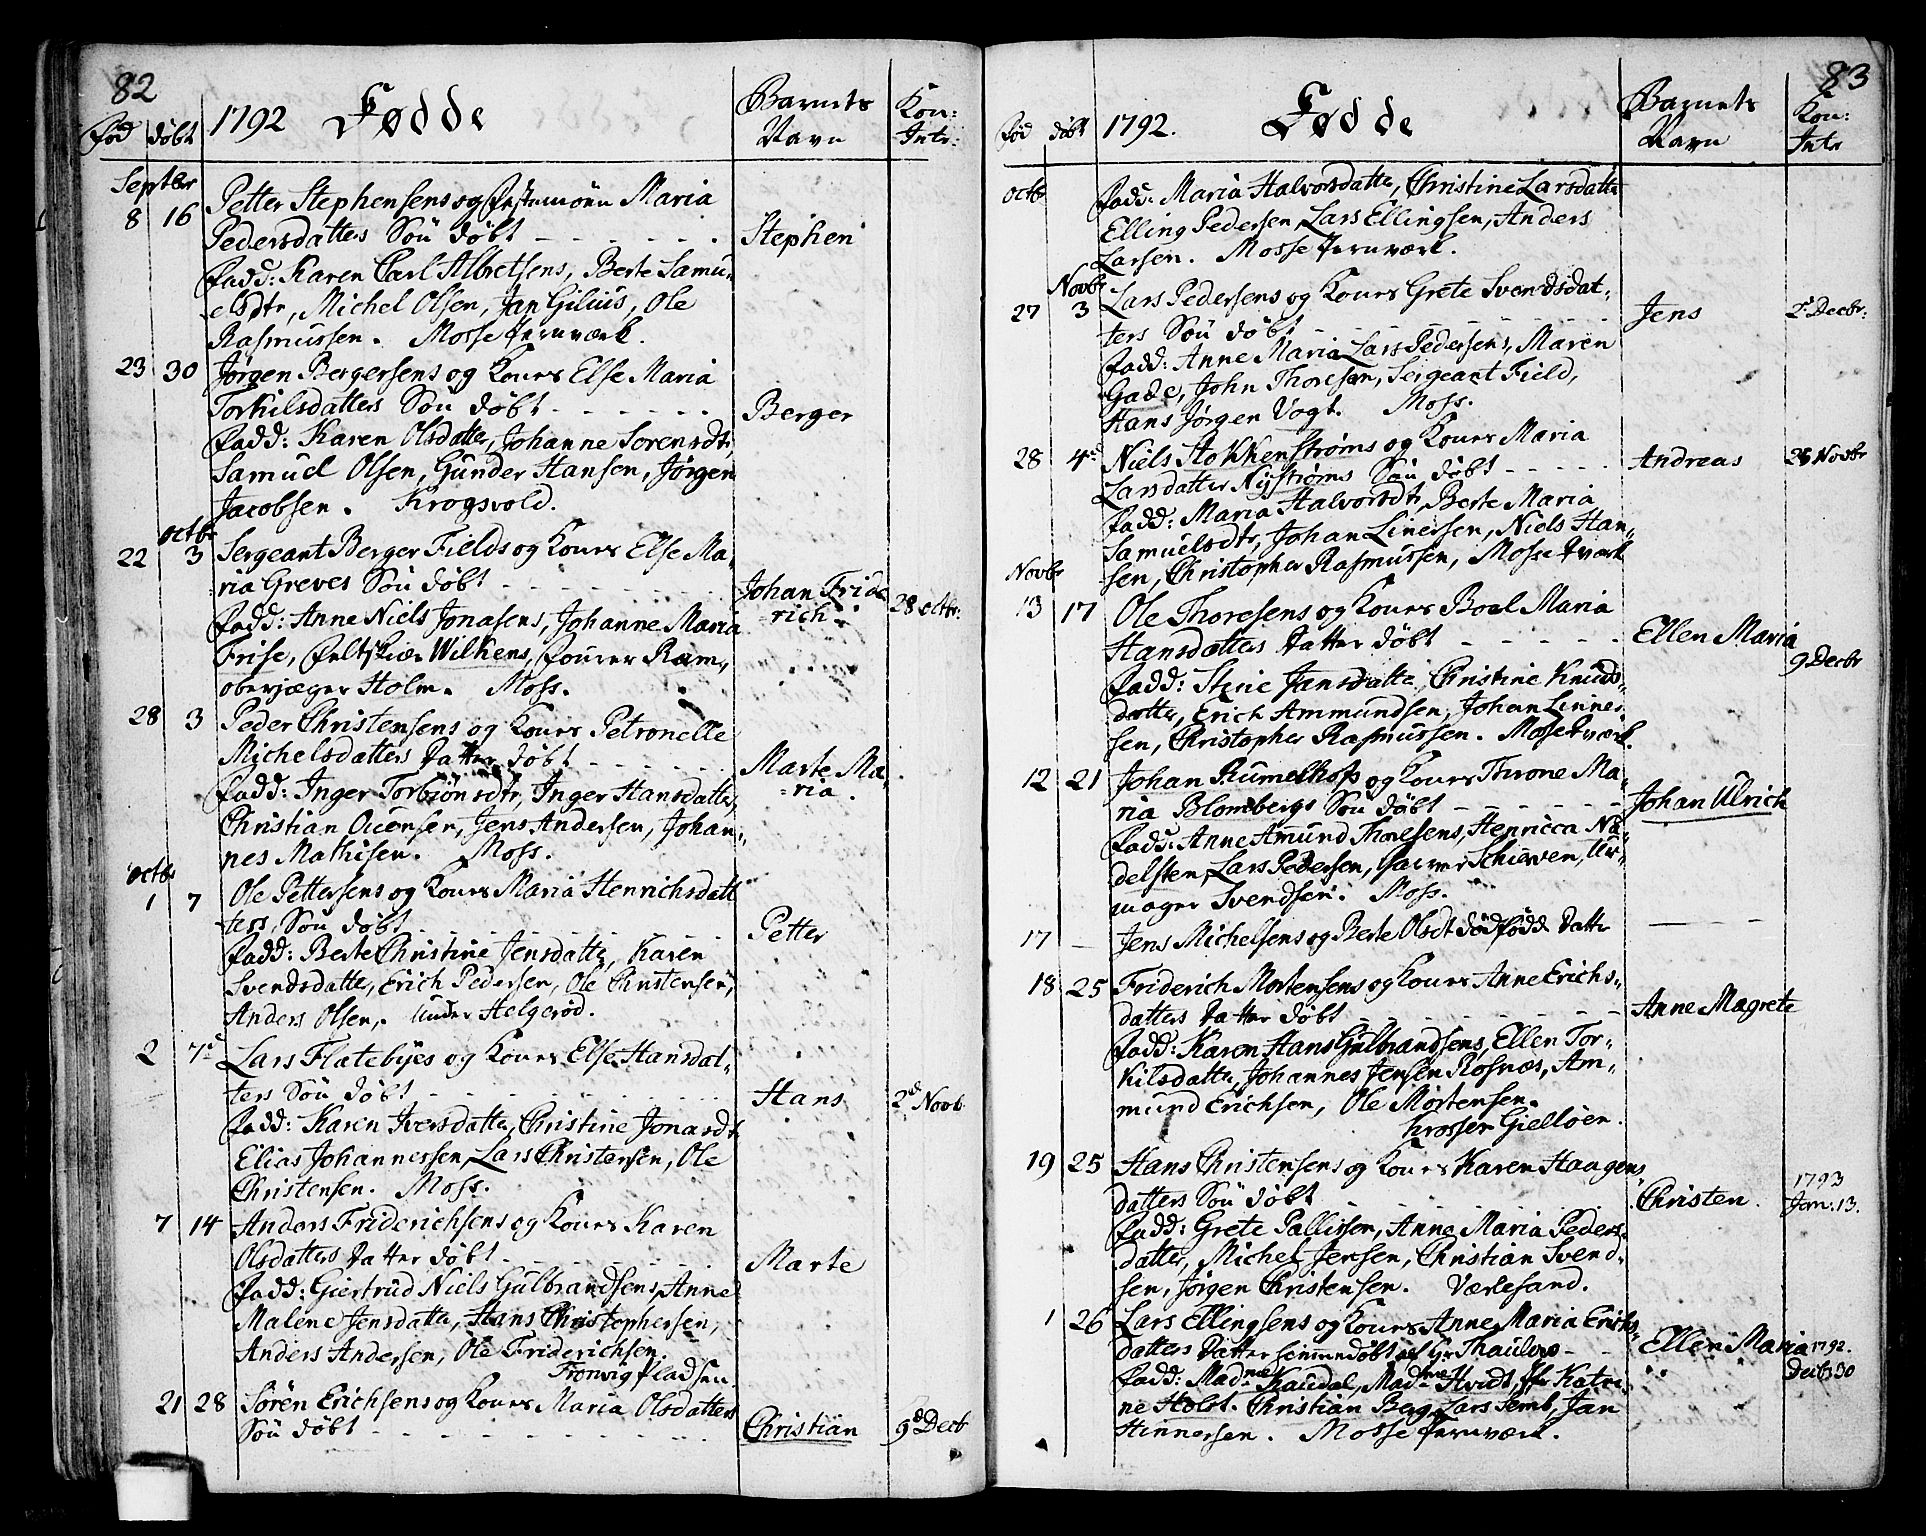 82
Fød døbt 1792 Fødde Barnets Navn Kon: Intr:
Septbr
8 16 Petter Stephensens og Festemøen Maria
Pedersdatters Søn døbt Stephen
Fadd: Karen Carl Albretsens, Berte Samu-
elsdtr, Michel Olsen, Jan Gilius, Ole
Rasmussen. Mosse Jernværk.
23 30 Jørgen Bergersens og Kones Else Maria
Torkilsdatters Søn døbt Berger
Fadd: Karen Olsdatter, Johanne Sørensdtr,
Samuel Olsen, Gunder Hansen, Jørgen
Jacobsen. Krogsvold.
octbr
22 3 Sergeant Berger Fields og Kones Else Ma-
ria Greves Søn døbt Johan Fride-
rich. 28 octbr:
Fadd: Anne Niels Jonasens, Johanne Maria
Frise, Feltskiær Wilkens, Fourer Ram,
oberjæger Holm. Moss.
28 3 Peder Christensens og Kones Petronelle
Michelsdatters Datter døbt Marte Ma-
ria.
Fadd: Inger Torbiönsdtr, Inger Hansdatter,
Christian Ovensen, Jens Andersen, Johan-
nes Mathisen. Moss.
octbr
1 7 Ole Pettersens og Kones Maria Henrichsdat
ters Søn døbt Petter
Fadd: Berte Christine Jensdatter, Karen
Svendsdatter, Erich Pedersen, Ole Christensen,
Anders Olsen, under Helgerød.
2 7d Lars Flatebyes og Kones Else Hansdat-
ters Søn døbt Hans 2d Novb
Fadd: Karen Iversdatter, Christine Jonasdtr
Elias Johannessen, Lars Christensen, Ole
Christensen. Moss.
7 14 Anders Friderichsens og Kones Karen
Olsdatters Datter døbt Marte
Fadd: Giertrud Niels Gulbrandsens, Anne
Malene Jensdatter, Hans Christophersen,
Anders Andersen, Ole Friderichsen.
Fronvig Pladsen.
21 28 Søren Erichsens og Kones Maria Olsdatters
Søn døbt Christian 9d Decb
83
Fød døbt 1792. Fødde Barnets Navn Kon: Intr
octbr Fadd: Maria Halvorsdatter, Christine Larsdatter
Elling Pedersen, Lars Ellingsen, Anders
Larsen. Mosse Jernværk.
Novbr
27 3 Lars Pedersens og Kones Grete Svendsdat-
ters Søn døbt Jens 2d Decbr:
Fadd: Anne Maria Lars Pedersens, Maren
Gade, John Thoresen, Sergeant Field,
Hans Jørgen Vogt. Moss.
28 4d Niels Stokkenstrøms og Kones Maria
Larsdatter Nystrøms Søn døbt Andreas 28 Novbr
Fadd: Maria Halvorsdtr, Berte Maria
Samuelsdtr, Johan Linersen, Niels Han-
sen, Christopher Rasmussen, Mosse Jværk
Novbr
13 17 Ole Thoresens og Kones Boel Maria
Hansdatters Datter døbt Ellen Maria
9 Decbr
Fadd: Stine Jansdatter, Christine Knuds-
datter, Erich Ammundsen, Johan Linner-
sen, Christopher Rasmussen. Mosse Jværk.
12 21 Johan Rumelhofs og Kones Throne Ma-
ria Blombergs Søn døbt Johan Ulrich
Fadd: Anne Amund Thoresens, Henricca Na-
delsten, Lars Pedersen, Schieven, Ur-
mager Svendsen. Moss.
17 — Jens Michelsens og Berte Olsdt dødfødd Datter —
18 25 Friderich Mortensens og Kones Anne Erichs-
datters Datter døbt Anne Magrete
Fadd: Karen Hans Gulbrandsens, Ellen Tor-
kilsdatter, Johannes Jensen Rosnæs, Am-
mund Erichsen, Ole Mortensen.
Krosser Gielløen.
19 25 Hans Christensens og Kones Karen Haagens
datters Søn døbt Christen. 1793
Jan: 13.
Fadd: Grete Pallisen, Anne Maria Peders-
datter, Michel Jensen, Christian Svend-
sen, Jørgen Christensen. Værlesand.
1 26 Lars Ellingsens og Kones Anne Maria Erichs-
datters Datter hiemmedøbt af Hr Thaulow Ellen Maria 1792.
Decbr 30
Fadd: Madme Kaudal, Madme Hvidt, Jfr Katri-
ne Holst. Christian Berg, Lars Semb, Jan
Hinnersen. Mosse Jernværk.